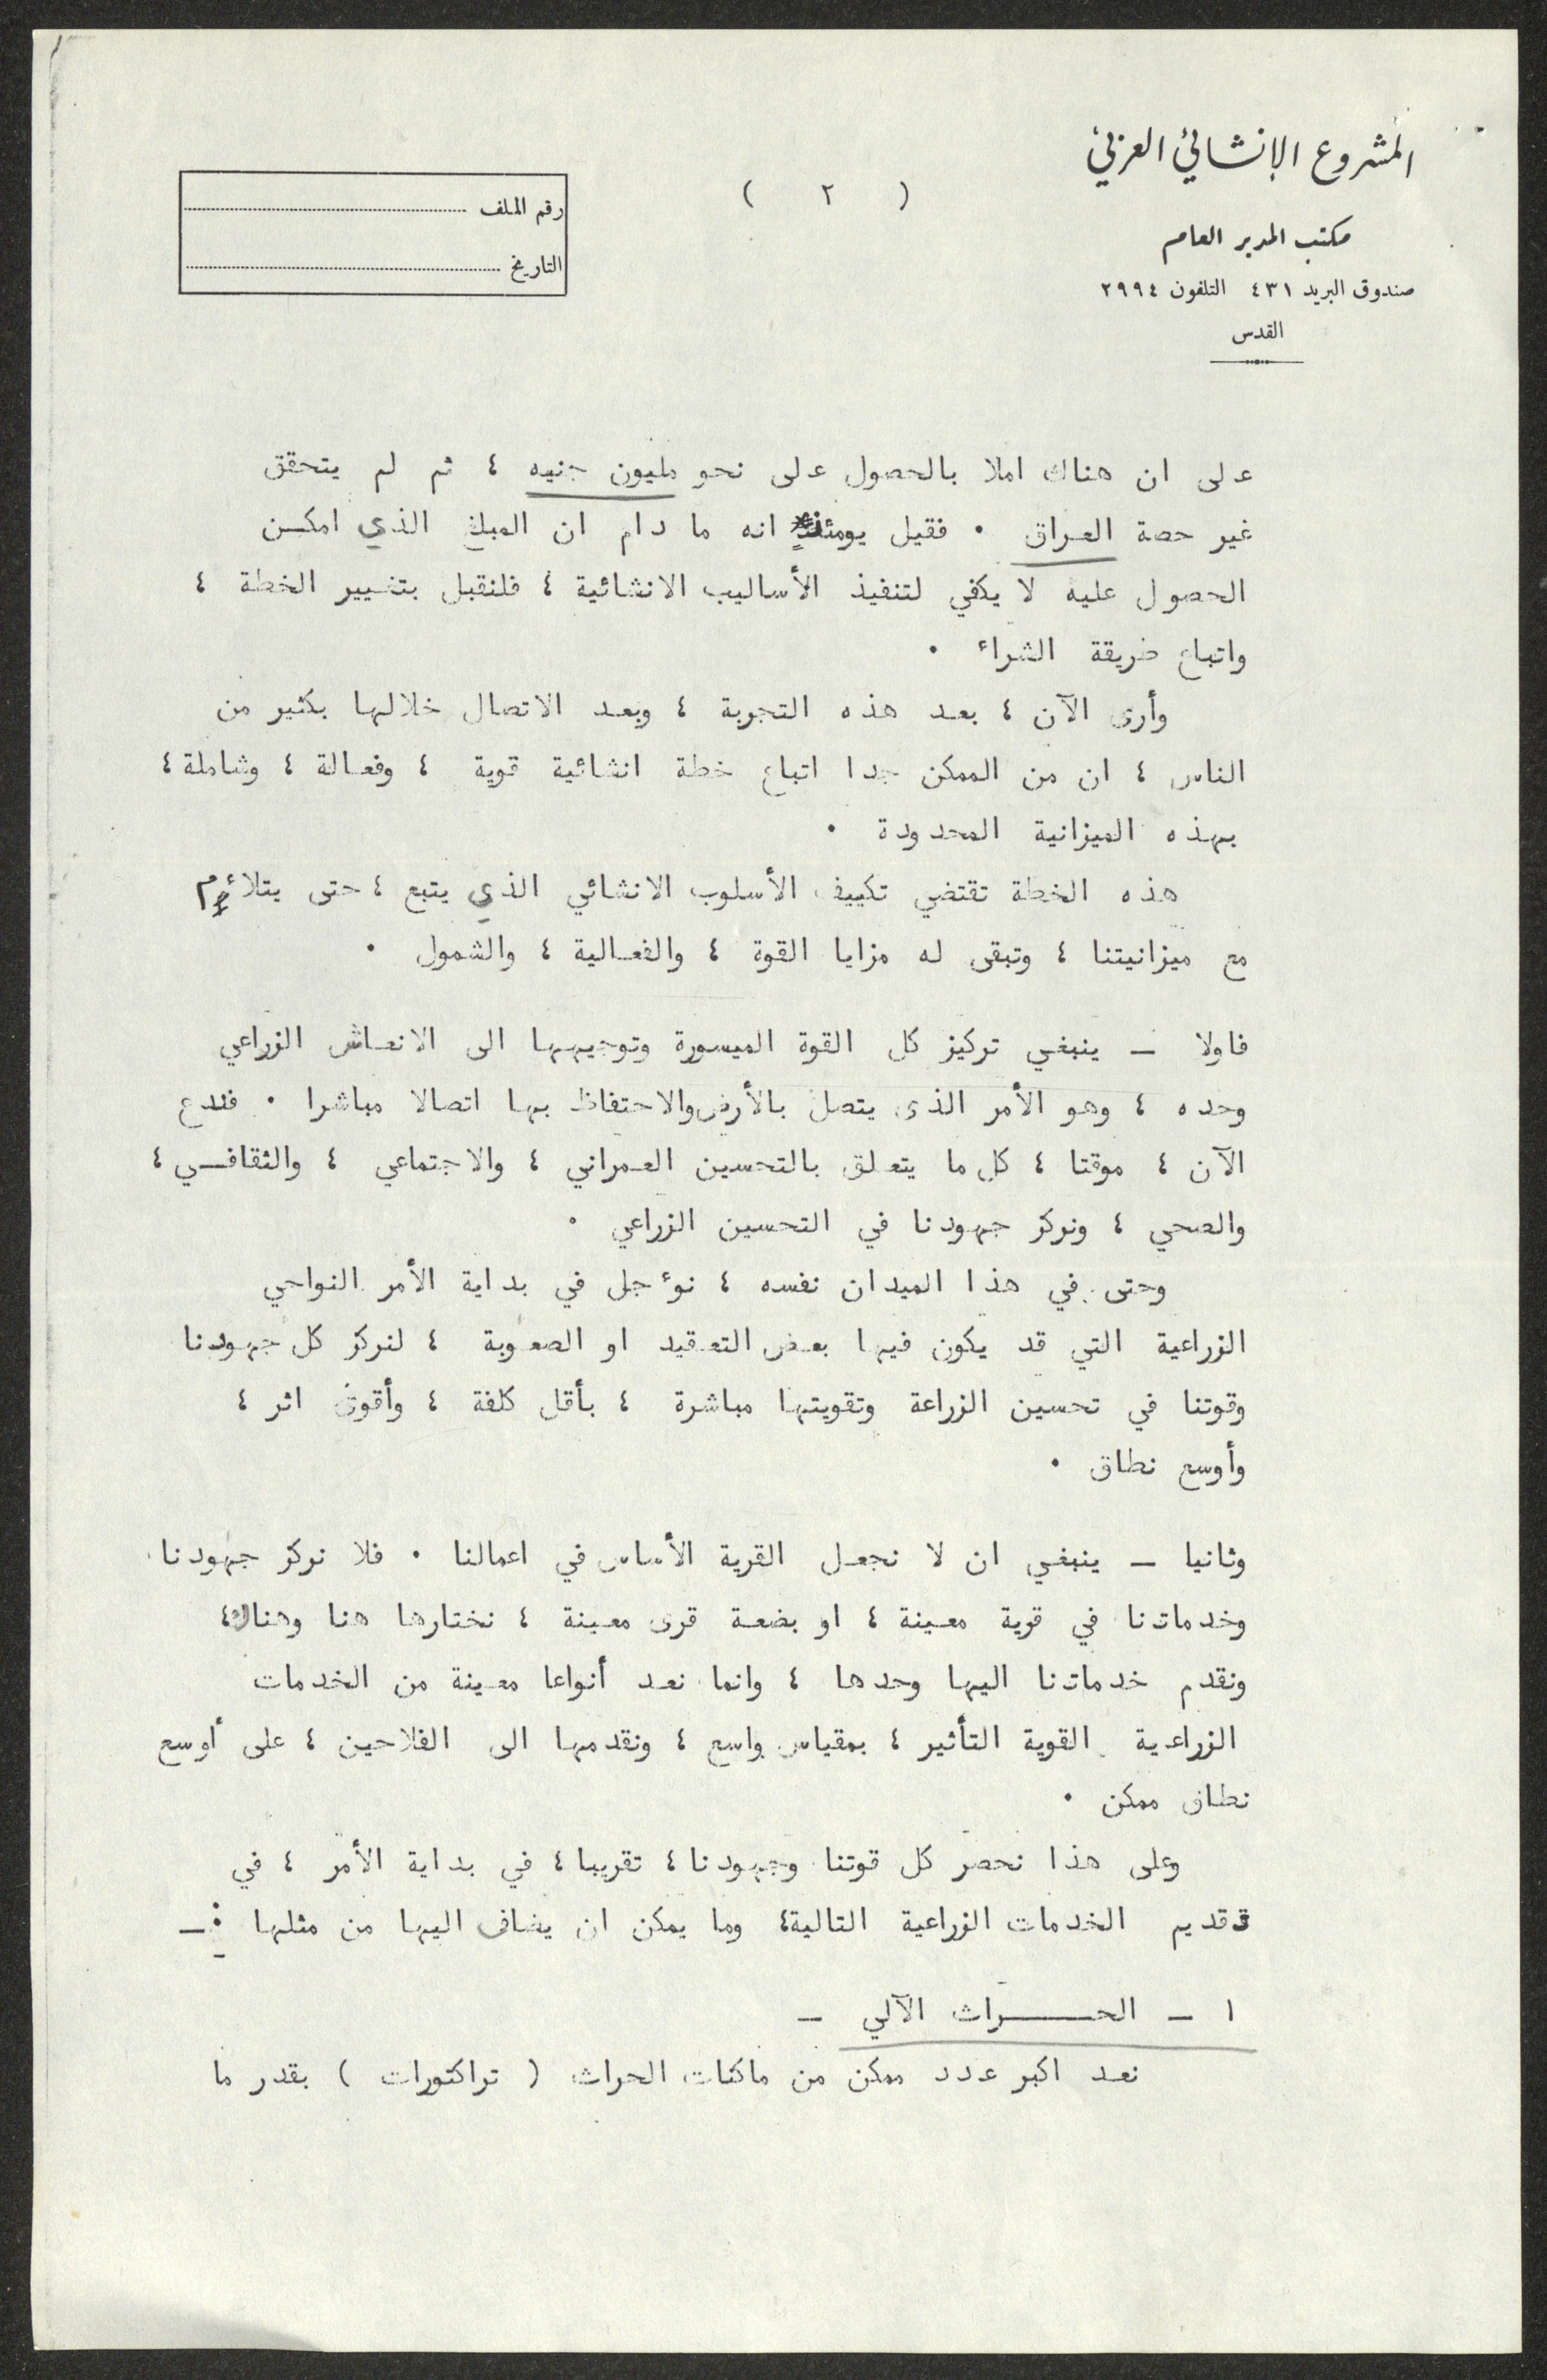 المشروع الإنشائي العربي
مكتب المدير العام
صندوق البريد ٤٣١ التلفون ٢٩٩٤
القدس
( ٢ )
رقم الملف
التاريخ
على ان هناك املا بالحصول على نحو مليون جنيه ، ثم لم يتحقق
غير حصة العراق . فقيل يومئذ انه ما دام ان المبلغ الذي امكن
الحصول عليه لا يكفي لتنفيذ الأساليب الانشائية ، فلنقبل بتغيير الخطة ،
واتباع طريقة الشراء .
وأرى الآن ، بعد هذه التجربة ، وبعد الاتصال خلالها بكثير من
الناس ، ان من الممكن جدا اتباع خطة انشائية قوية ، وفعالة ، وشاملة ،
بهذه الميزانية المحدودة .
هذه الخطة تقتضي تكييف الأسلوب الانشائي الذي يتبع ، حتى يتلائم
مع ميزانيتنا ، وتبقى له مزايا القوة ، والفعالية ، والشمول .
فاولا – ينبغي تركيز كل القوة الميسورة وتوجيهها الى الانعاش الزراعي
وحده ، وهو الأمر الذى يتصل بالأرض والاحتفاظ بها اتصالا مباشرا . فندع
الآن ، موقتا ، كل ما يتعلق بالتحسين العمراني ، والاجتماعي ، والثقافي ،
والصحي ، ونركز جهودنا في التحسين الزراعي .
وحتى في هذا الميدان نفسه ، نوءجل في بداية الأمر النواحي
الزراعية التي قد يكون فيها بعض التعقيد او الصعوبة ، لنركز كل جهودنا
وقوتنا في تحسين الزراعة وتقويتها مباشرة ، بأقل كلفة ، وأقوى اثر ،
وأوسع نطاق .
وثانيا – ينبغي ان لا نجعل القرية الأساس في اعمالنا . فلا نركز جهودنا
وخدماتنا في قرية معينة ، او بضعة قرى معينة ، نختارها هنا وهناك،
ونقدم خدماتنا اليها وحدها ، وانما نعد أنواعا معينة من الخدمات
الزراعية القوية التأثير ، بمقياس واسع ، ونقدمها الى الفلاحين ، على أوسع
نطاق ممكن .
وعلى هذا نحصر كل قوتنا وجهودنا ، تقريبا ، في بداية الأمر ، في
تقديم الخدمات الزراعية التالية، وما يمكن ان يضاف اليها من مثلها :–
١ – الحـــراث الآلي –
نعد اكبر عدد ممكن من ماكنات الحراث ( تراكتورات ) بقدر ما